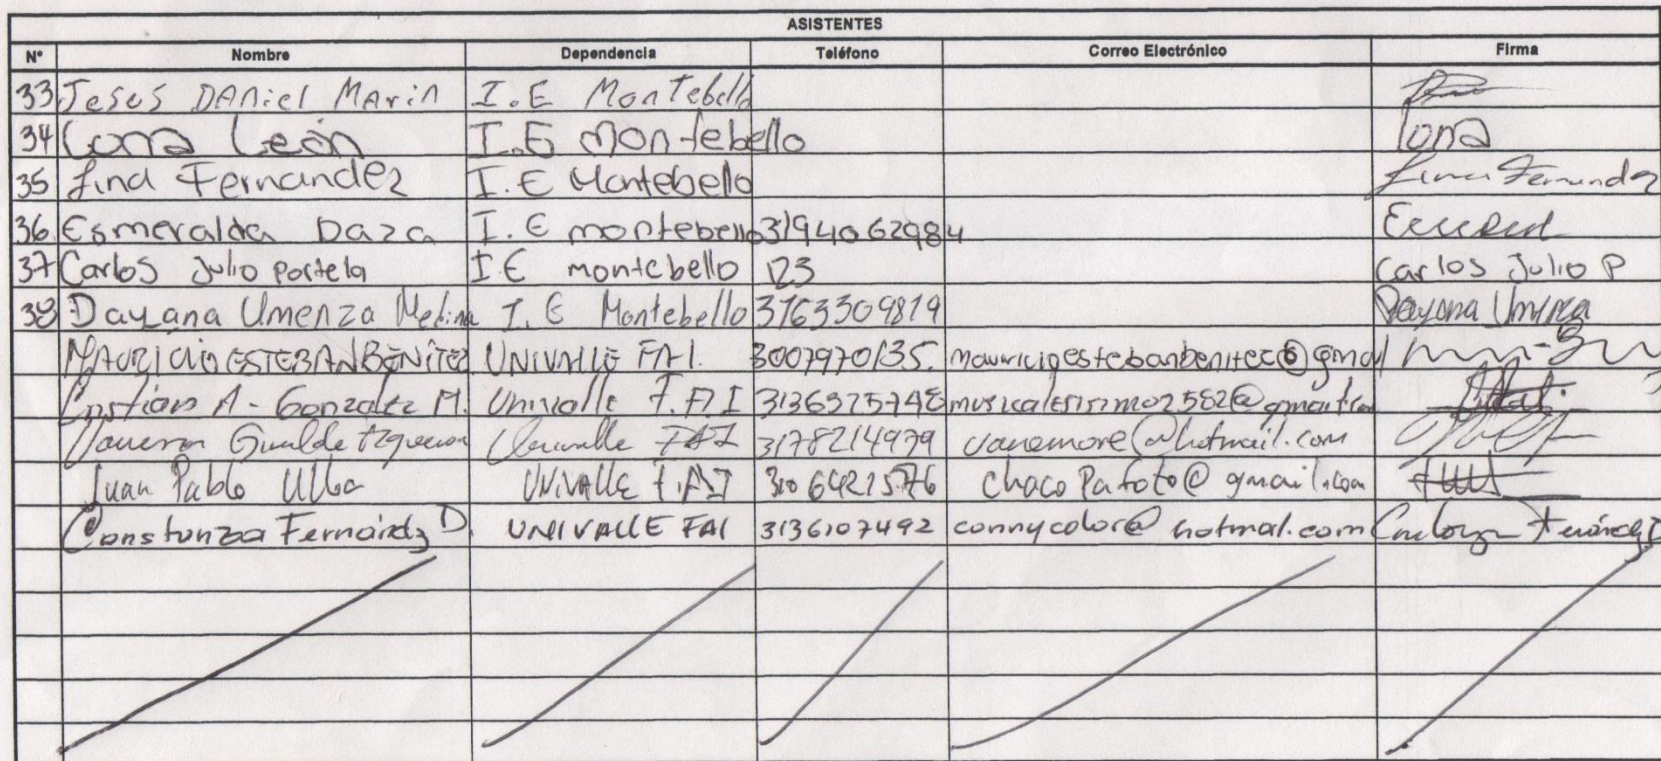 ASISTENTES
N° Nombre Dependencia Teléfono Correo Electrónico Firma
33 Jesus DAniel MArin I.E Montebello
34 Lona León I.E montebello lona
35 Lina Fernandez I.E Montebello Lina Fernandez
36 Esmeralda Daza I.E montebello 3194062984
37 Carlos Julio portela I.E montebello 123 Carlos Julio P
38 Dayana Umenza Medina I.E Montebello 3163309819 Dayana Umenza
MAURICIO ESTEBAN BENITEZ UNIVALLE FAI. 3007970135. mauricioestebanbenitec@gmail
Cristian A. Gonzalez M. Univalle F.A.I
Univalle FAI 3178214979 vanemore@hotmail.com
Juan Pablo Ulloa UNIVALLE F.A.I chacopafoto@gmail.com
Constanza Fernández D. UNIVALLE FAI 3136107492 connycolor@hotmal.com